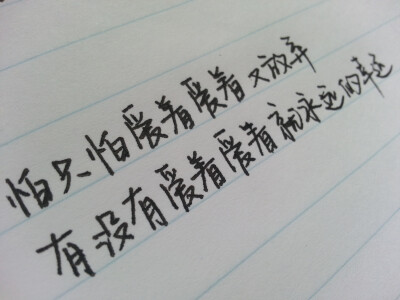 怕只怕爱着爱着又放弃
有没有爱着爱着就永远的幸运